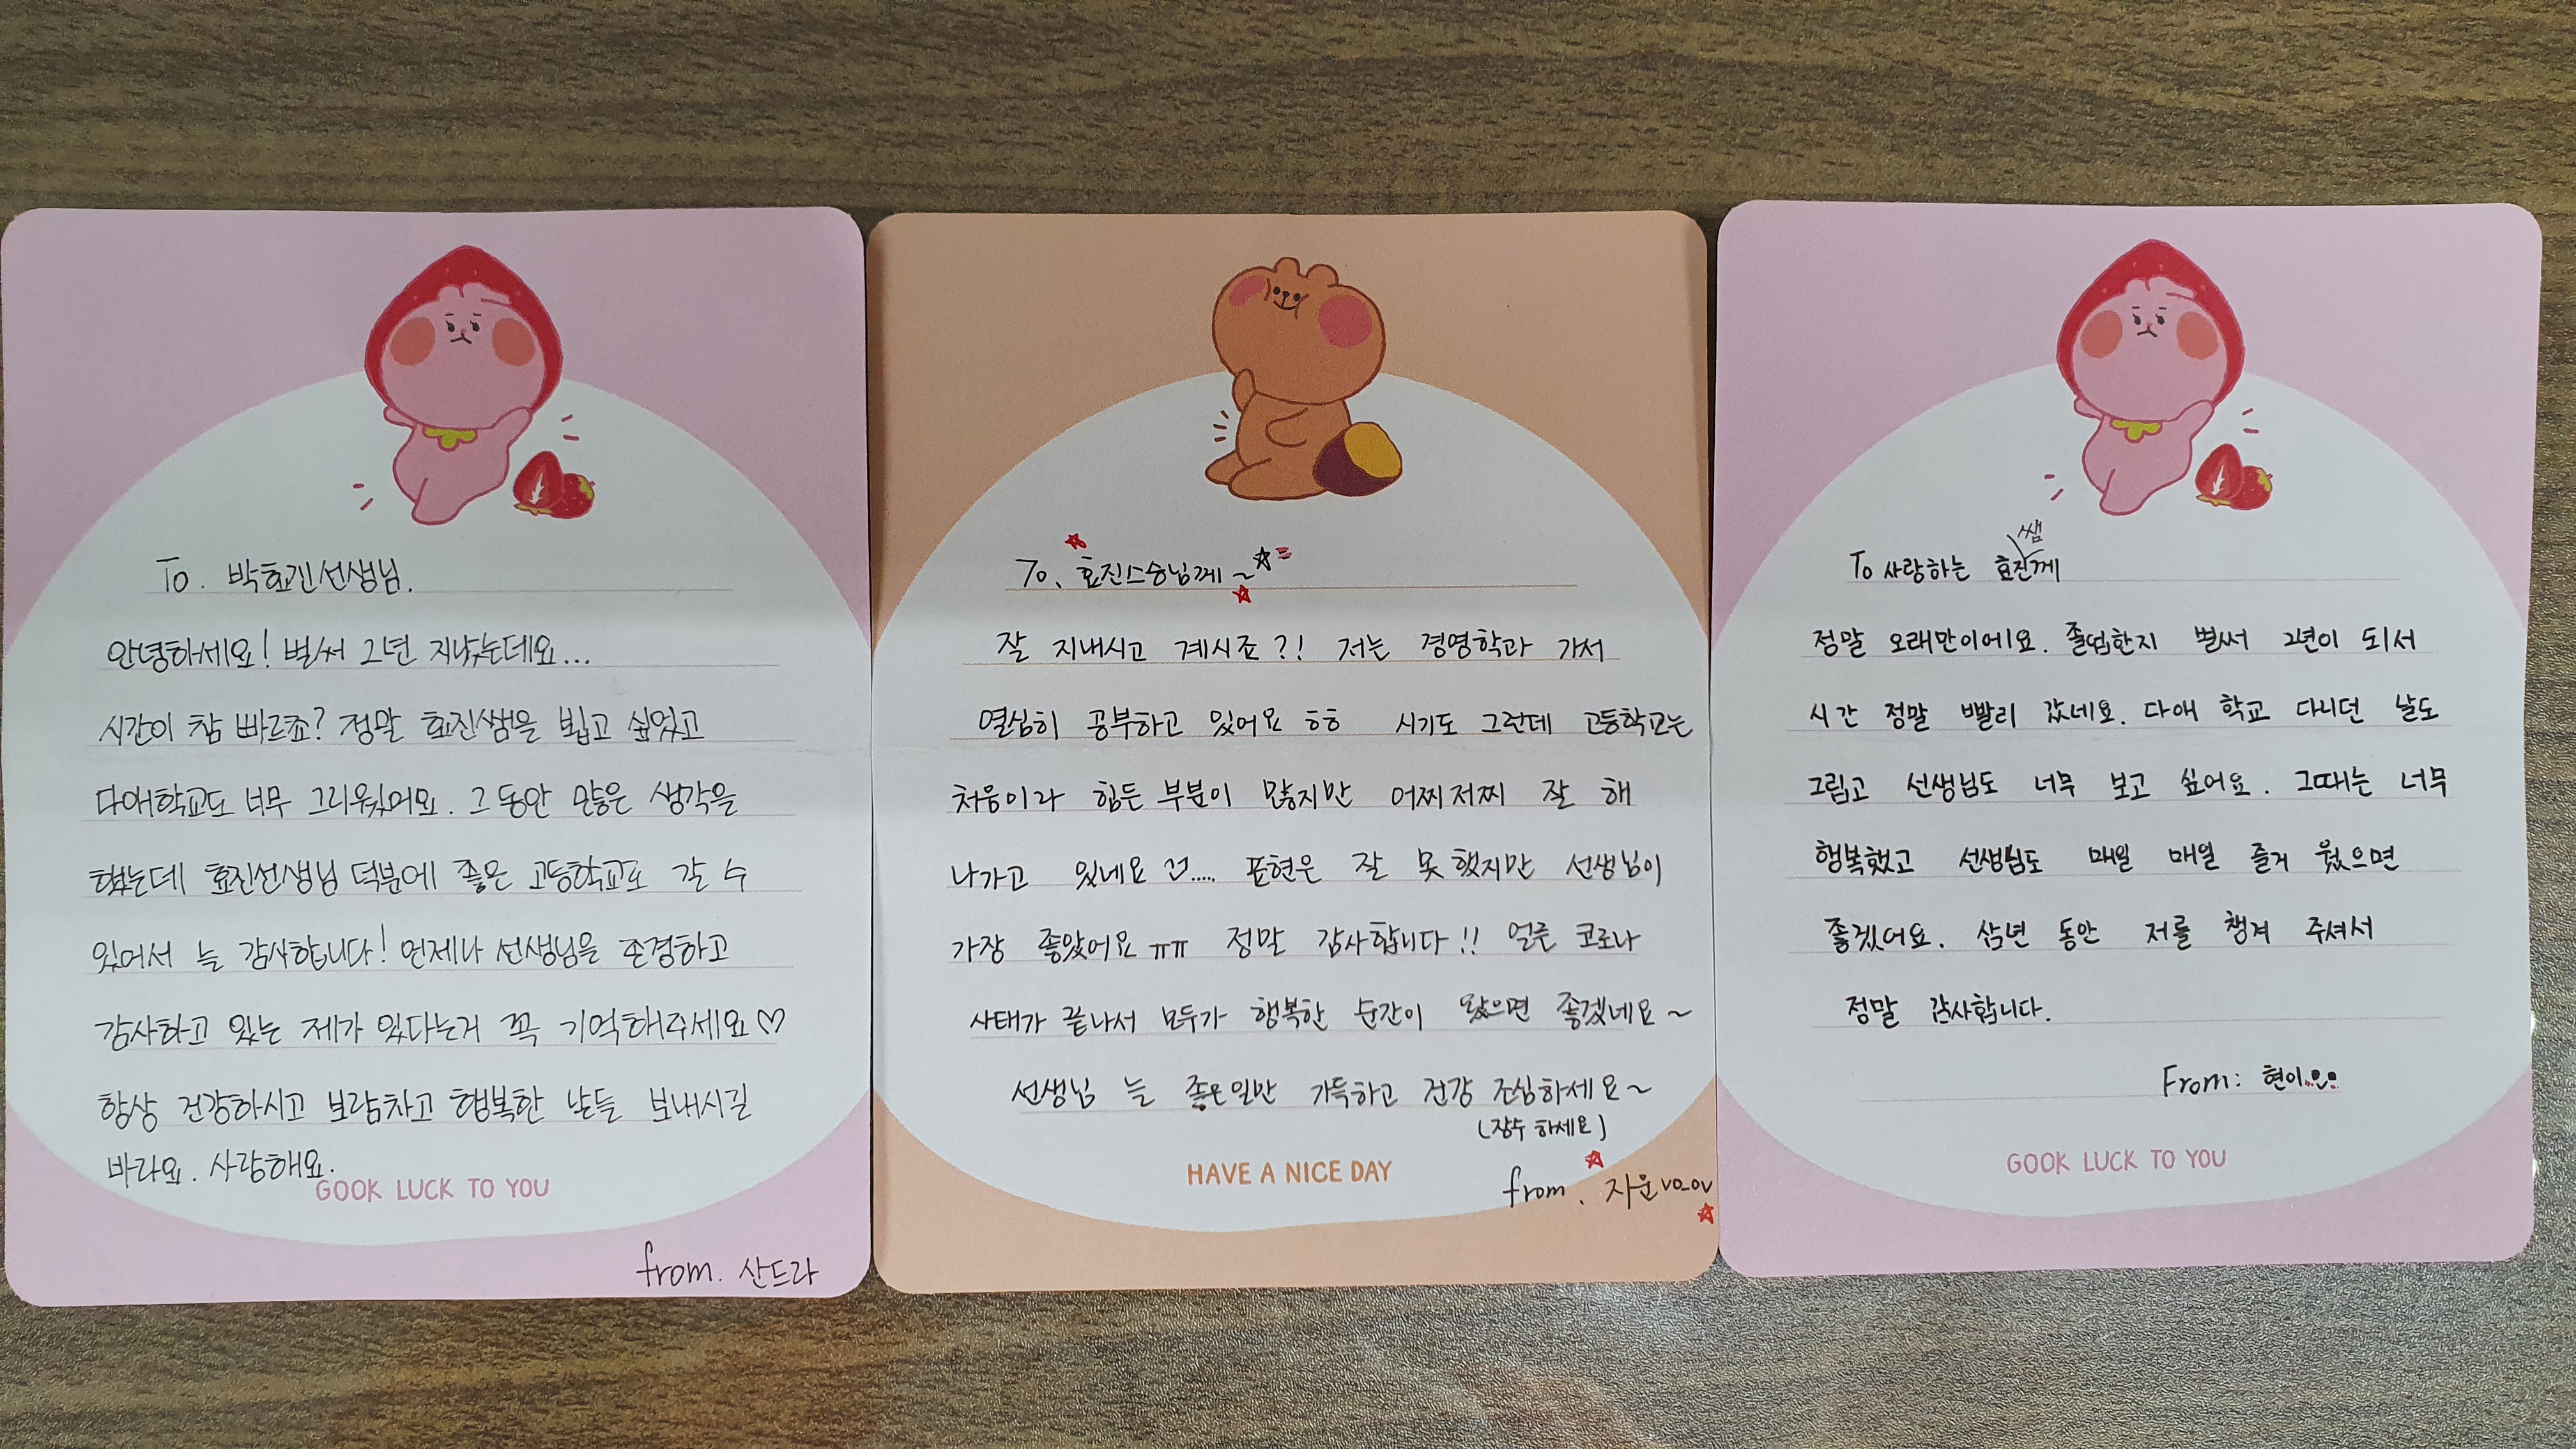 To. 박효진선생님.
안녕하세요! 벌써 2년 지났는데요...
시간이 참 빠르죠? 정말 효진쌤을 뵙고 싶었고
다애학교도 너무 그리웠어요. 그 동안 많은 생각을
했는데 효진선생님 덕분에 좋은 고등학교도 갈 수
있어서 늘 감사합니다! 언제나 선생님을 존경하고
감사하고 있는 제가 있다는거 꼭 기억해주세요♡
항상 건강하시고 보람차고 행복한 날들 보내시길
바라요. 사랑해요.
GOOK LUCK TO YOU
from. 산드라
To. 효진스승님께~☆
잘 지내시고 계시죠?! 저는 경영학과 가서
열심히 공부하고 있어요 ㅎㅎ 시기도 그런데 고등학교는
처음이라 힘든 부분이 많지만 어찌저찌 잘 해
나가고 있네요 ..... 표현은 잘 못했지만 선생님이
가장 좋았어요 ㅠㅠ 정말 감사합니다!! 얼른 코로나
사태가 끝나서 모두가 행복한 순간이 왔으면 좋겠네요~
선생님 늘 좋은일만 가득하고 건강 조심하세요~
(장수 하세요)
HAVE A NICE DAY
from. 자운 vo_ov
To 사랑하는 효진쌤께
정말 오래만이에요. 졸업한지 벌써 2년이 되서
시간 정말 빨리 갔네요. 다애 학교 다니던 날도
그립고 선생님도 너무 보고 싶어요. 그때는 너무
행복했고 선생님도 매일 매일 즐거 웠으면
좋겠어요. 삼년 동안 저를 챙겨 주셔서
정말 감사합니다.
From: 현이
GOOK LUCK TO YOU